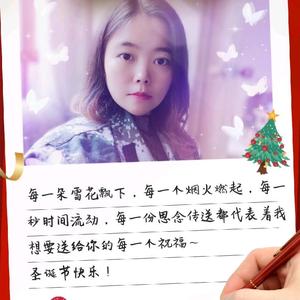 每一朵雪花飘下，每一个烟火燃起，每一
秒时间流动，每一份思念传送都代表着我
想要送给你的每一个祝福~
圣诞节快乐！